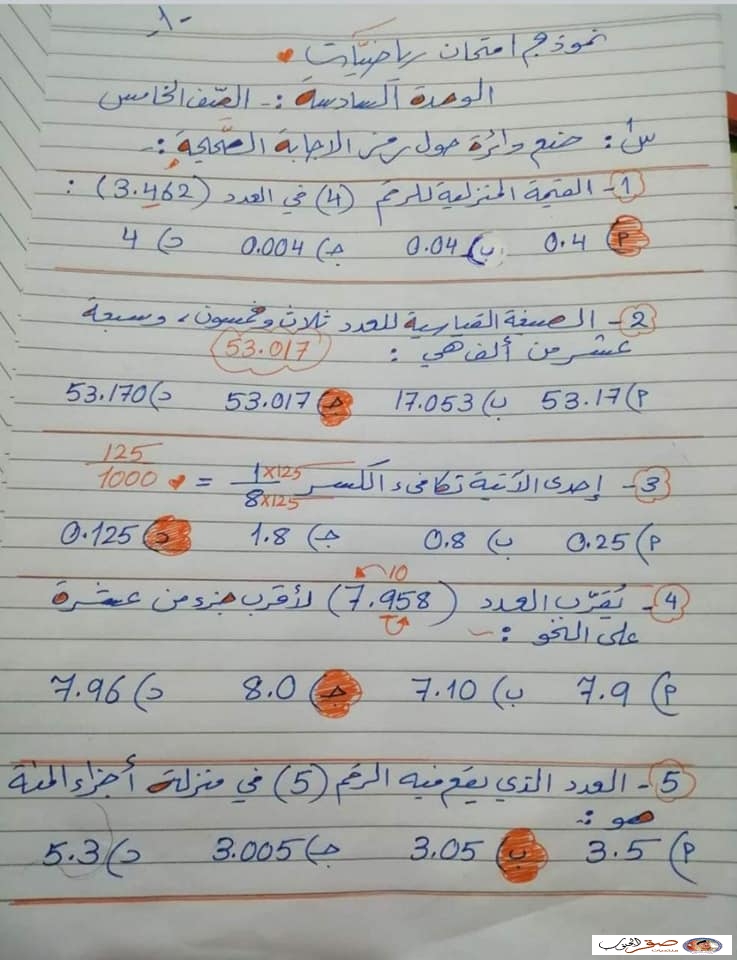 -1-
نموذج امتحان رياضيّات
الوحدة السادسة :- الصّف الخامس
س1: ضع دائرة حول رمز الاجابة الصّحيحة :-
1- القيمة المنزلية للرقم (4) في العدد (3.462) :
أ) 0.4 ب) 0.04 جـ) 0.004 د) 4
2- الصيغة القياسية للعدد ثلاث وخمسون، وسبعة
عشر من ألف هي : 53.017
أ) 53.17 ب) 17.053 جـ) 53.017 د) 53.170
3- إحدى الآتية تكافىء الكسر 1×125/8×125 = 125/1000
أ) 0.25 ب) 0.8 جـ) 1.8 د) 0.125
10
4- يُقرّب العدد (7.958) لأقرب جزء من عشرة
على النحو :-
أ) 7.9 ب) 7.10 جـ) 8.0 د) 7.96
5- العدد الذي يقع فيه الرقم (5) في منزلة أجزاء المئة
هو :-
أ) 3.5 ب) 3.05 جـ) 3.005 د) 5.3
منتديات صقر الجنوب